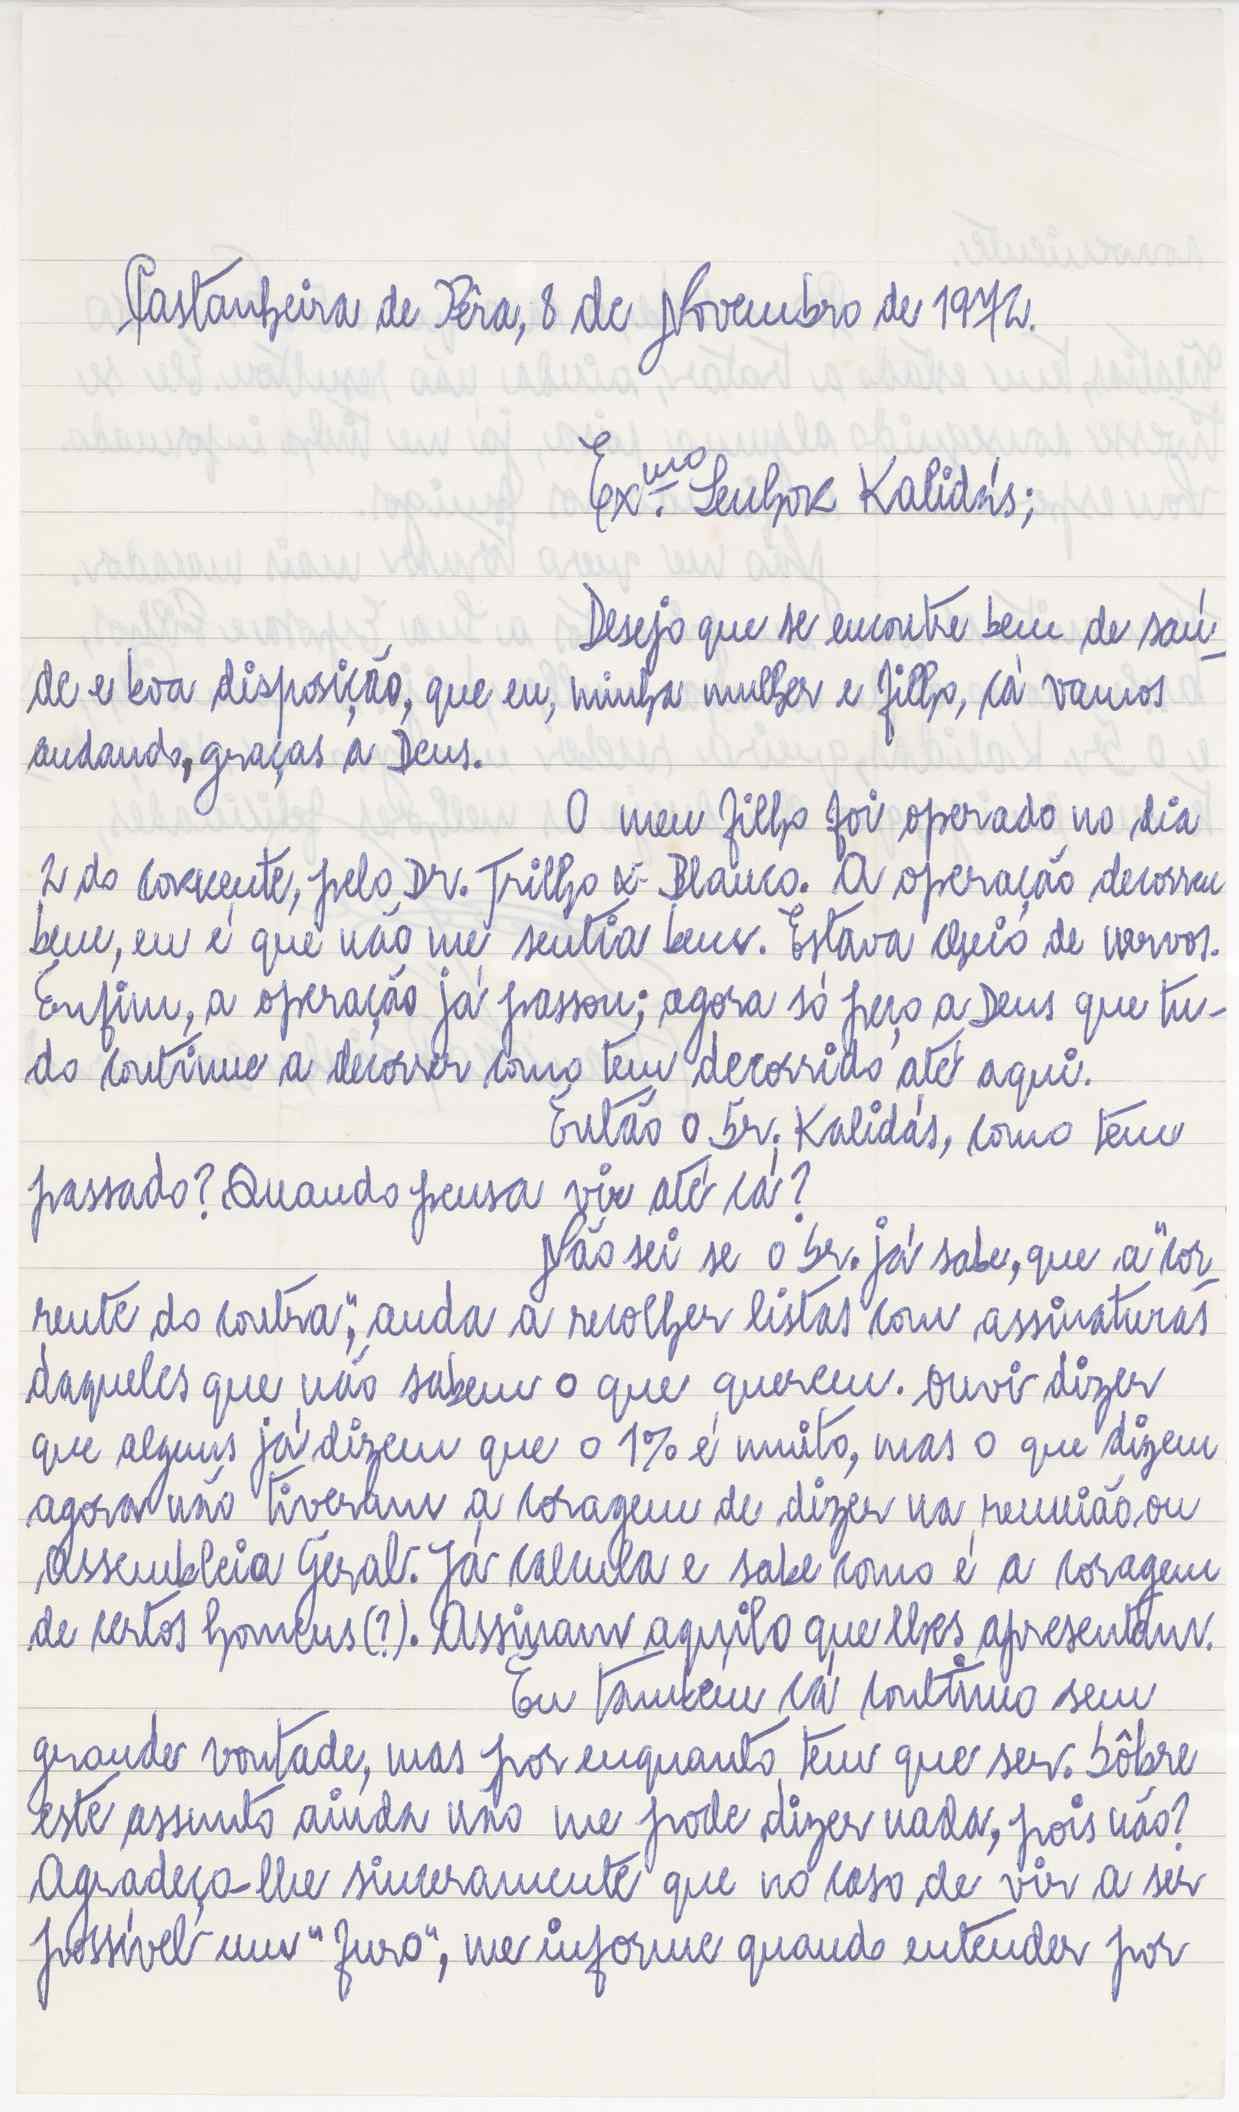 Castanheira de Pêra, 8 de Novembro de 1972.
Exmo. Senhor Kalidás;
Desejo que se encontre bem de saú-
de e boa disposição, que eu, minha mulher e filho, cá vamos
andando, graças a Deus.
O meu filho foi operado no dia
2 do corrente, pelo Dr. Trilho y Blanco. A operação decorreu
bem, eu é que não me sentia bem. Estava cheio de nervos.
Enfim, a operação já passou; agora só peço a Deus que tu-
do continue a decorrer como tem decorrido até aqui.
Então o Sr. Kalidás, como tem
passado? Quando pensa vir até cá?
Não sei se o Sr. já sabe, que a "cor
rente do contra", anda a recolher listas com assinaturas
daqueles que não sabem o que querem. Ouvi dizer
que alguns já dizem que o 1% é muito, mas o que dizem
agora não tiveram a coragem de dizer na reunião ou
Assembleia Geral. Já calcula e sabe como é a coragem
de certos homens(?). Assinam aquilo que lhes apresentam.
Eu também cá continuo sem
grande vontade, mas por enquanto tem que ser. Sôbre
este assunto ainda não me pode dizer nada, pois não?
Agradeço-lhe sinceramente que no caso de vir a ser
possível um "furo", me informe quando entender por